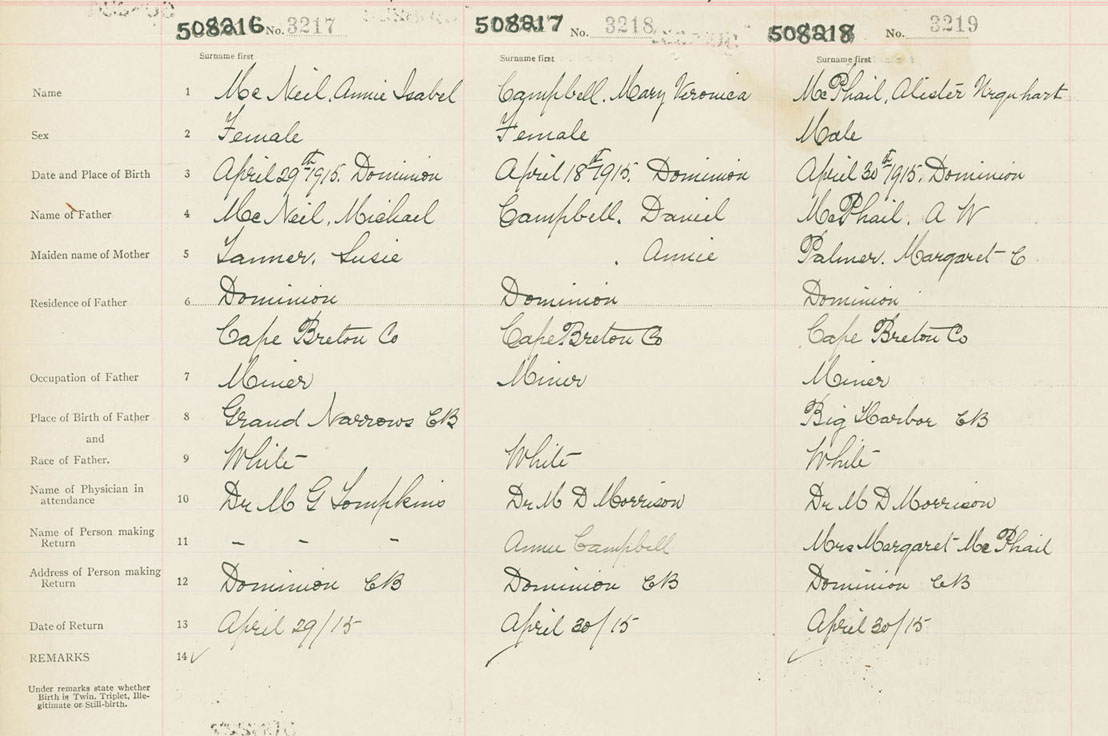 508216 No. 3217 508217 No. 3218 508218 No. 3219
Surname first Surname first Surname first
Name 1 McNeil, Annie Isabel Campbell, Mary Veronica McPhail, Alister Urquhart
Sex 2 Female Female Male
Date and Place of Birth 3 April 29th 1915. Dominion April 18th 1915. Dominion April 30th 1915. Dominion
Name of Father 4 McNeil, Michael Campbell, Daniel McPhail, A W
Maiden name of Mother 5 Tanner, Susie , Annie Palmer, Margaret C
Residence of Father 6 Dominion Dominion Dominion
Cape Breton Co Cape Breton Co Cape Breton Co
Occupation of Father 7 Miner Miner Miner
Place of Birth of Father 8 Grand Narrows CB Big Harbor CB
and
Race of Father. 9 White White White
Name of Physician in
attendance 10 Dr M G Tompkins Dr M D Morrison Dr M D Morrison
Name of Person making
Return 11 – – – Annie Campbell Mrs Margaret McPhail
Address of Person making
Return 12 Dominion CB Dominion CB Dominion CB
Date of Return 13 April 29/15 April 30/15 April 30/15
REMARKS 14
Under remarks state whether
Birth is Twin, Triplet, Ille-
gitimate or Still-birth.